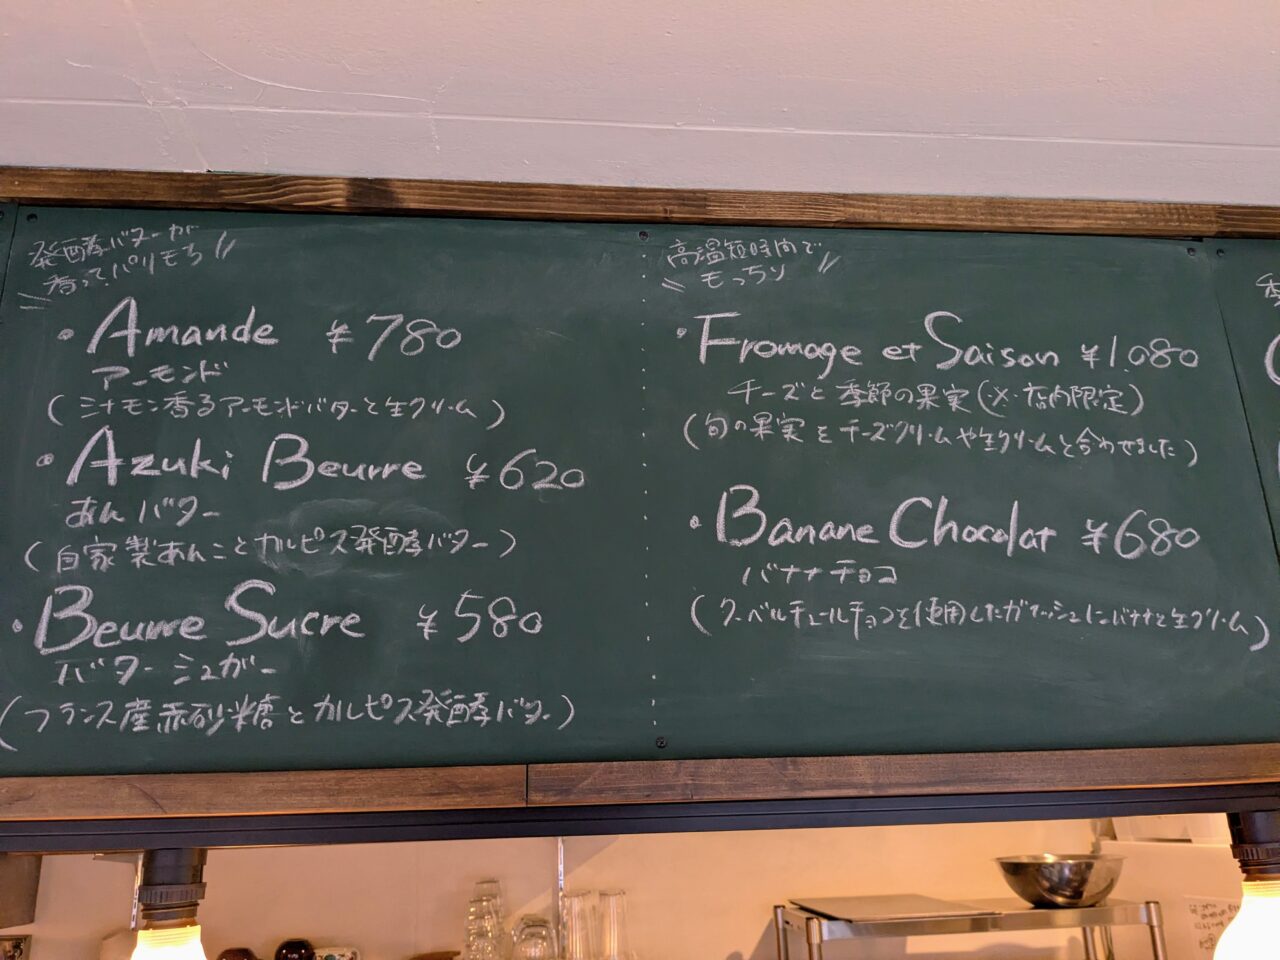 発酵バターが
香って、パリもち
・Amande ¥780
アーモンド
(シナモン香るアーモンドバターと生クリーム)
・Azuki Beurre ¥620
あんバター
(自家製あんことカルピス発酵バター)
・Beurre Sucre ¥580
バターシュガー
(フランス産赤砂糖とカルピス発酵バター)
高温短時間で
もっちり
・Fromage et Saison ¥1.080
チーズと季節の果実(※店内限定)
(旬の果実をチーズクリームや生クリームと合わせました)
・Banane Chocolat ¥680
バナナチョコ
(クーベルチュールチョコを使用したガナッシュにバナナと生クリーム)